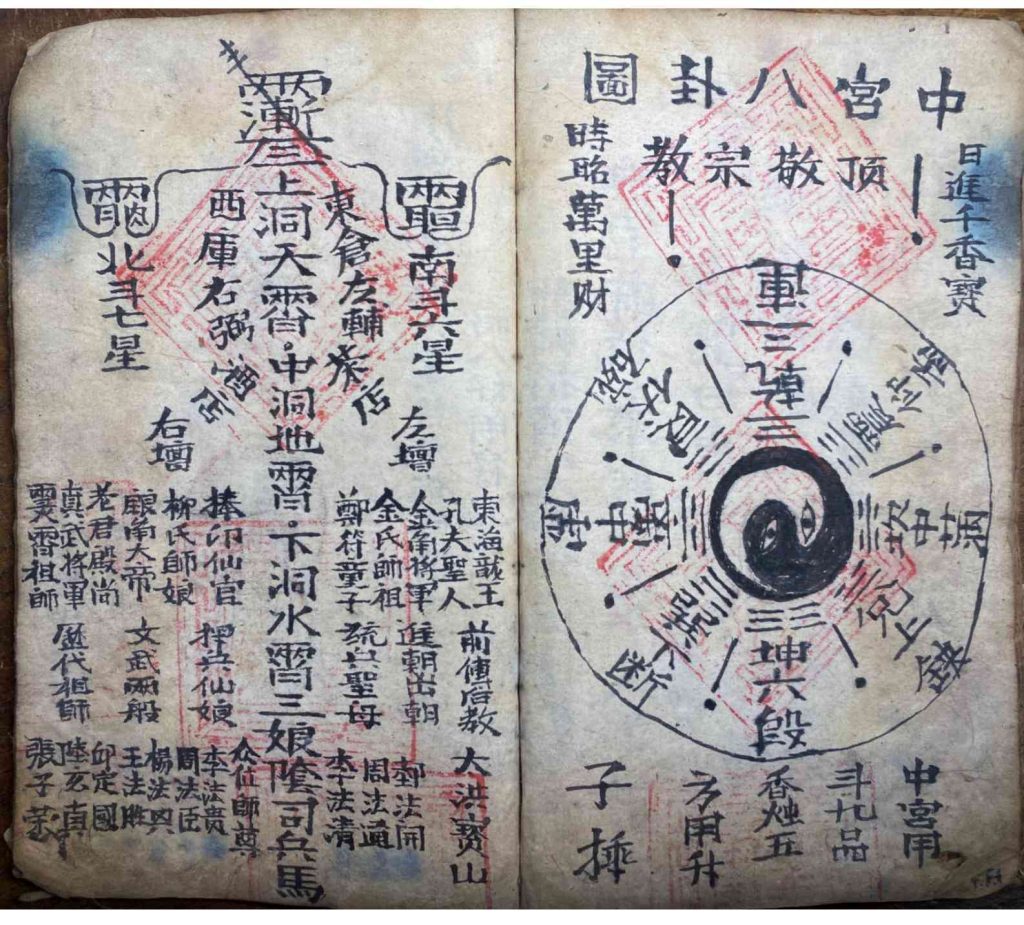 中宮八卦圖
顶敬宗教
日進千香寶
時昭萬里财
三連
坎中滿
兑上
坤六段
巽下断
中虚
艮伏碗
震仰盂
中宮用
斗九品
香烛五
方用升
子
南斗六星
左壇
東倉左輔茶店
上洞天霄·中洞地霄·下洞水霄三娘陰司兵馬
西庫右弼酒
北斗七星
右壇
東海龍王
孔夫聖人
金角將軍
金氏師祖
鄭符童子
捧印仙官
柳氏師娘
銀角大帝
老君殿尚
真武將軍
靈霄祖師
前傳后教
進朝出朝
聖母
押兵仙娘
文武兩般
歷代祖師
大洪寶山
郝法開
周法通
李法清
众位師尊
李法贵
周法臣
楊法興
王法胜
邱定國
陸玄真
張子荣